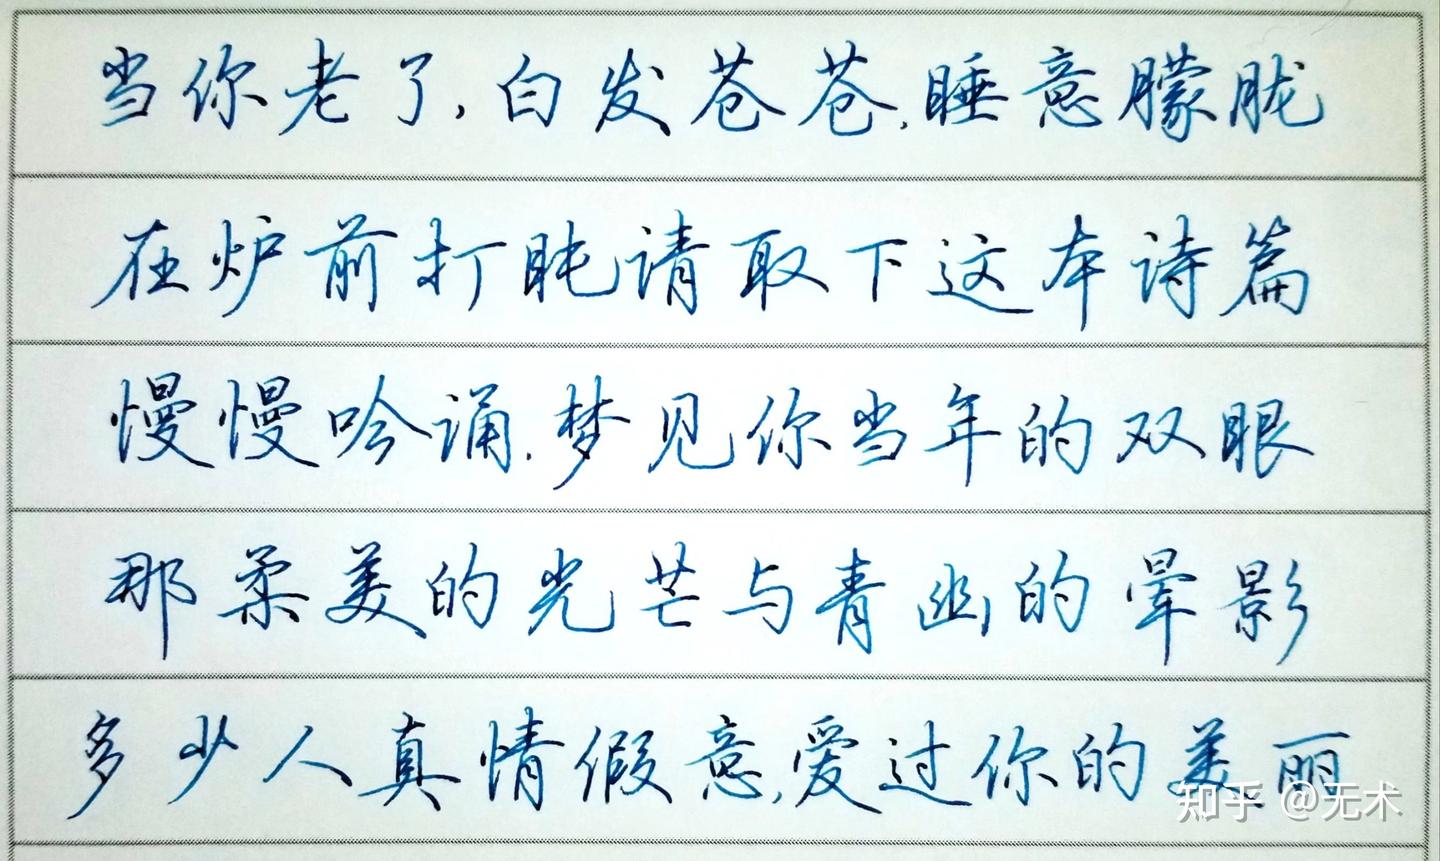 当你老了,白发苍苍,睡意朦胧
在炉前打盹请取下这本诗篇
慢慢吟诵,梦见你当年的双眼
那柔美的光芒与青幽的晕影
多少人真情假意,爱过你的美丽
知乎 @无术